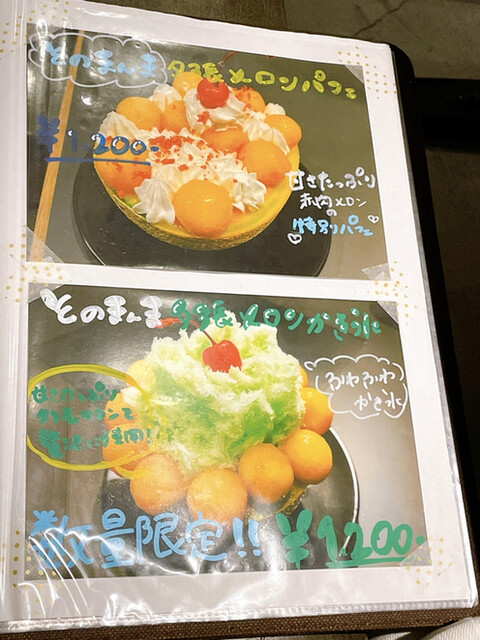 そのまんま
夕張メロンパフェ
¥1,200-
甘さたっぷり
赤肉メロン
の
特別パフェ
そのまんま
夕張メロンかき氷
甘さたっぷり
夕張メロンを
贅沢に使用!!
ふわふわ
かき氷
数量限定!!
¥1,200-